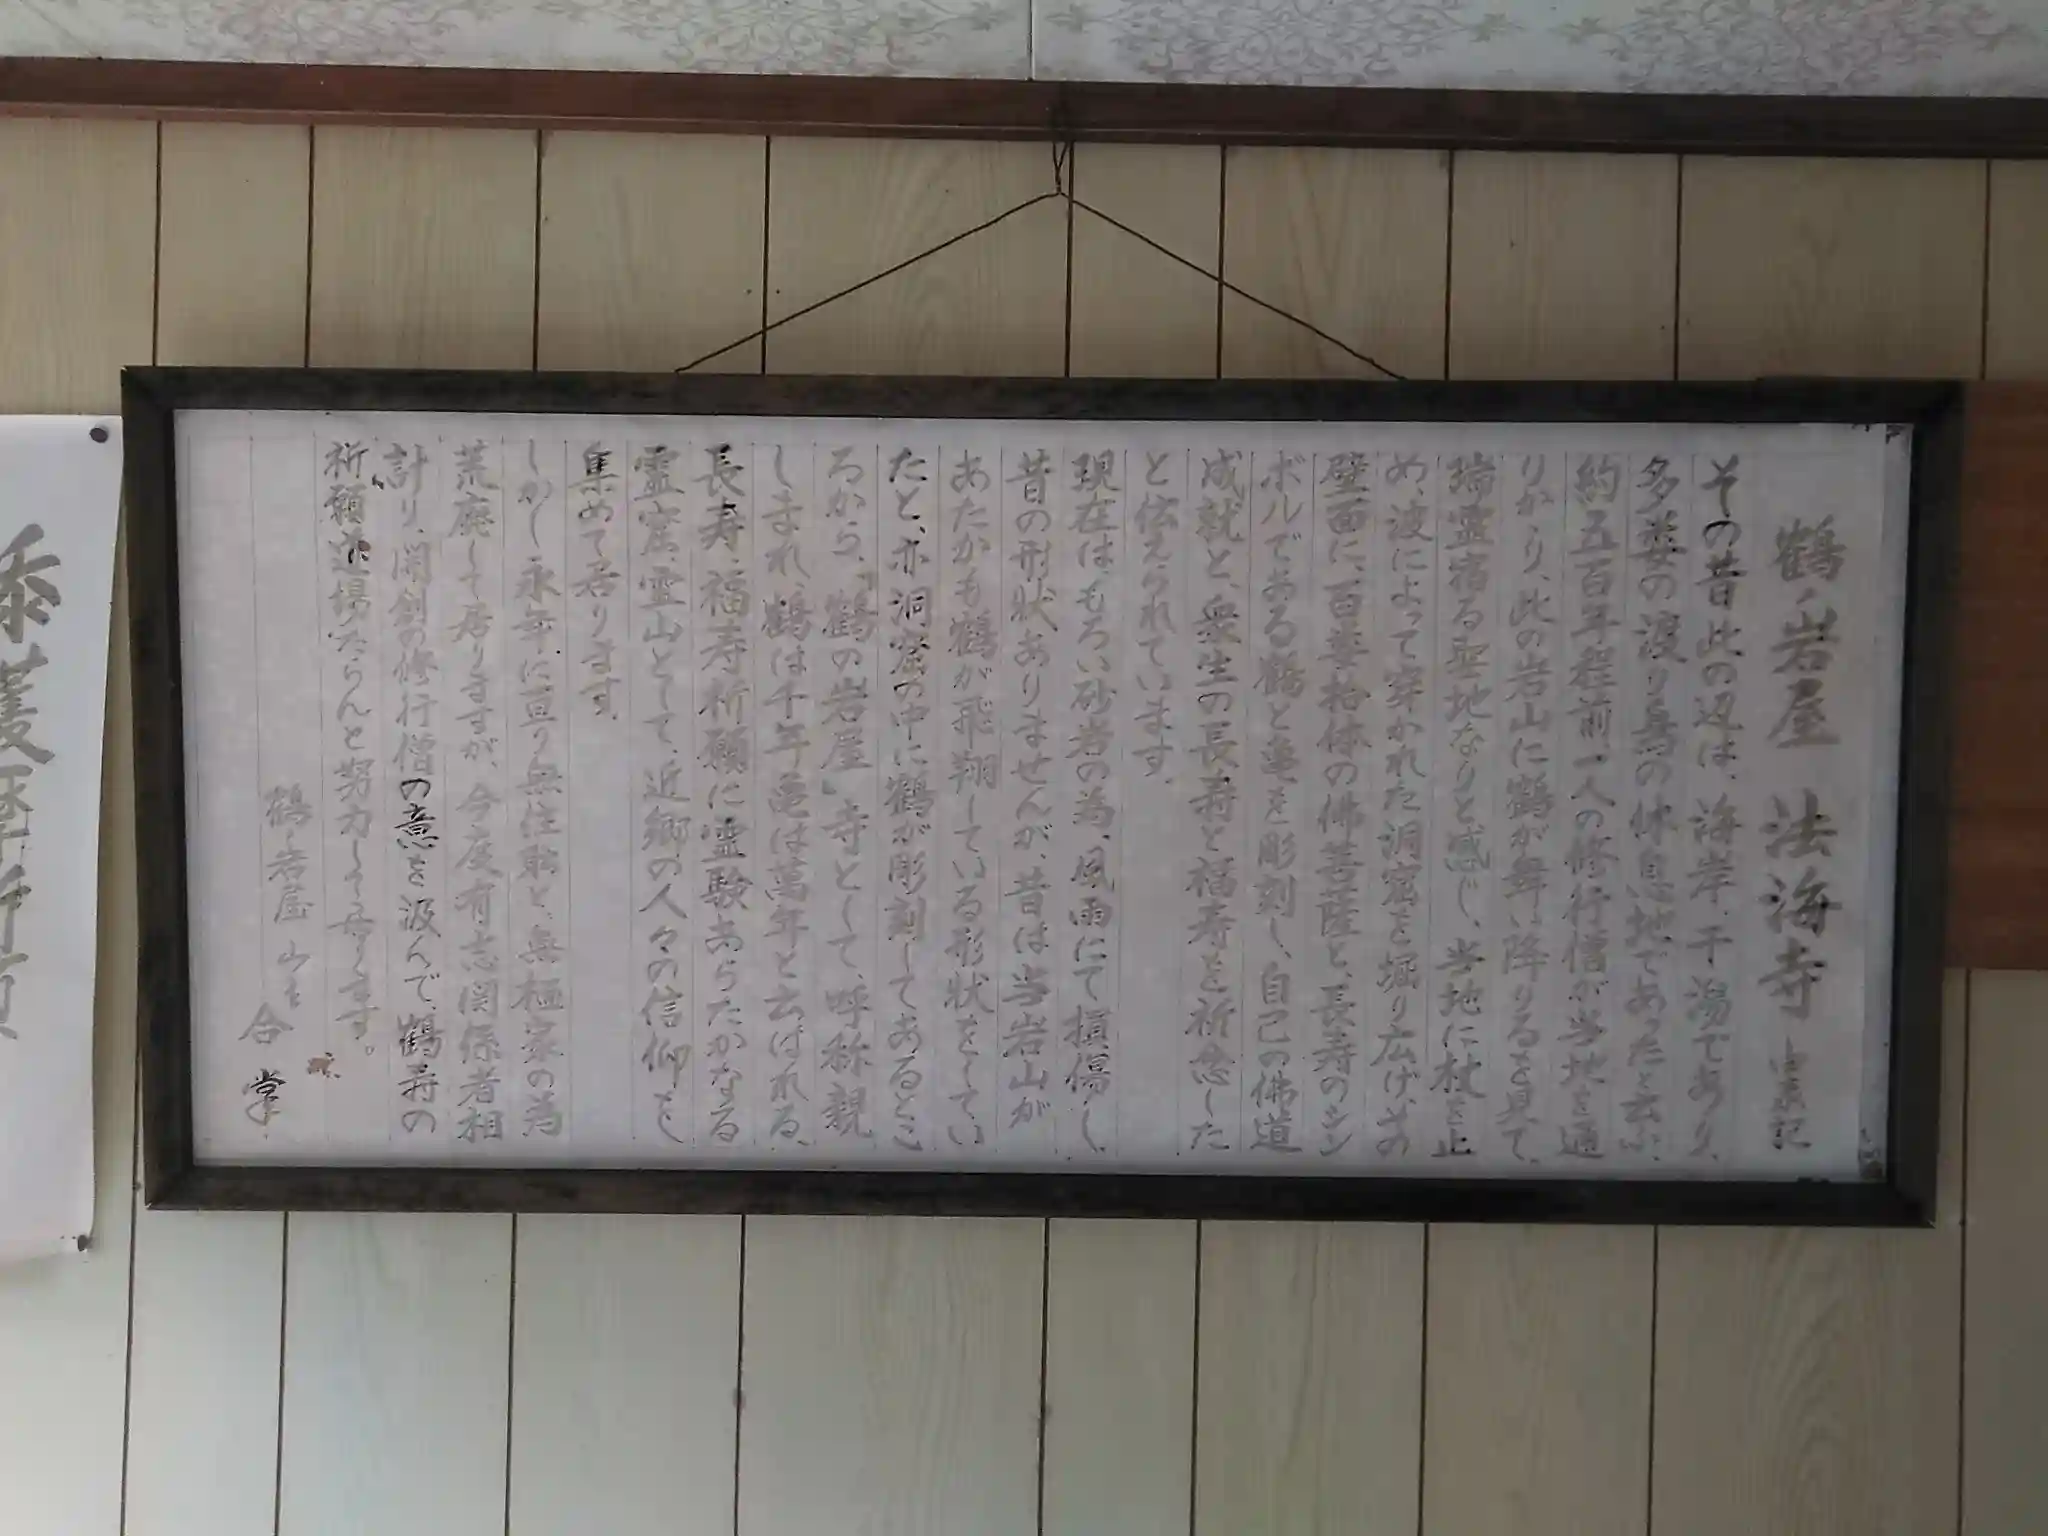 鶴ノ岩屋 法海寺 由来記
その昔此の辺は、海岸、干潟であり、
多数の渡り鳥の休息地であったと云ふ、
約五百年程前一人の修行僧が当地を通
りかかり、此の岩山に鶴が舞い降りるを見て、
瑞霊宿る聖地なりと感じ、当地に杖を止
め、波によって穿かれた洞窟を堀り広げ、その
壁面に、百数拾体の佛菩薩と、長寿のシン
ボルである鶴と亀を彫刻し、自己の佛道
成就と、衆生の長寿と福寿を祈念した
と伝えられています。
現在は、もろい砂岩の為、風雨にて損傷し、
昔の形状ありませんが、昔は当岩山が
あたかも鶴が飛翔している形状をしてい
たと、亦洞窟の中に鶴が彫刻してあるとこ
ろから、「鶴の岩屋」寺として、呼称親
しまれ、鶴は千年亀は萬年と云はれる、
長寿、福寿祈願に霊験あらたかなる
霊窟、霊山として、近郷の人々の信仰を
集めて居ります。
しかし永年に亘り無住職と、無檀家の為
荒廃して居りますが、今度有志関係者相
計り、開創の修行僧の意を汲んで、鶴寿の
祈願道場たらんと努力して居ります。
鶴ノ岩屋 山主
合掌